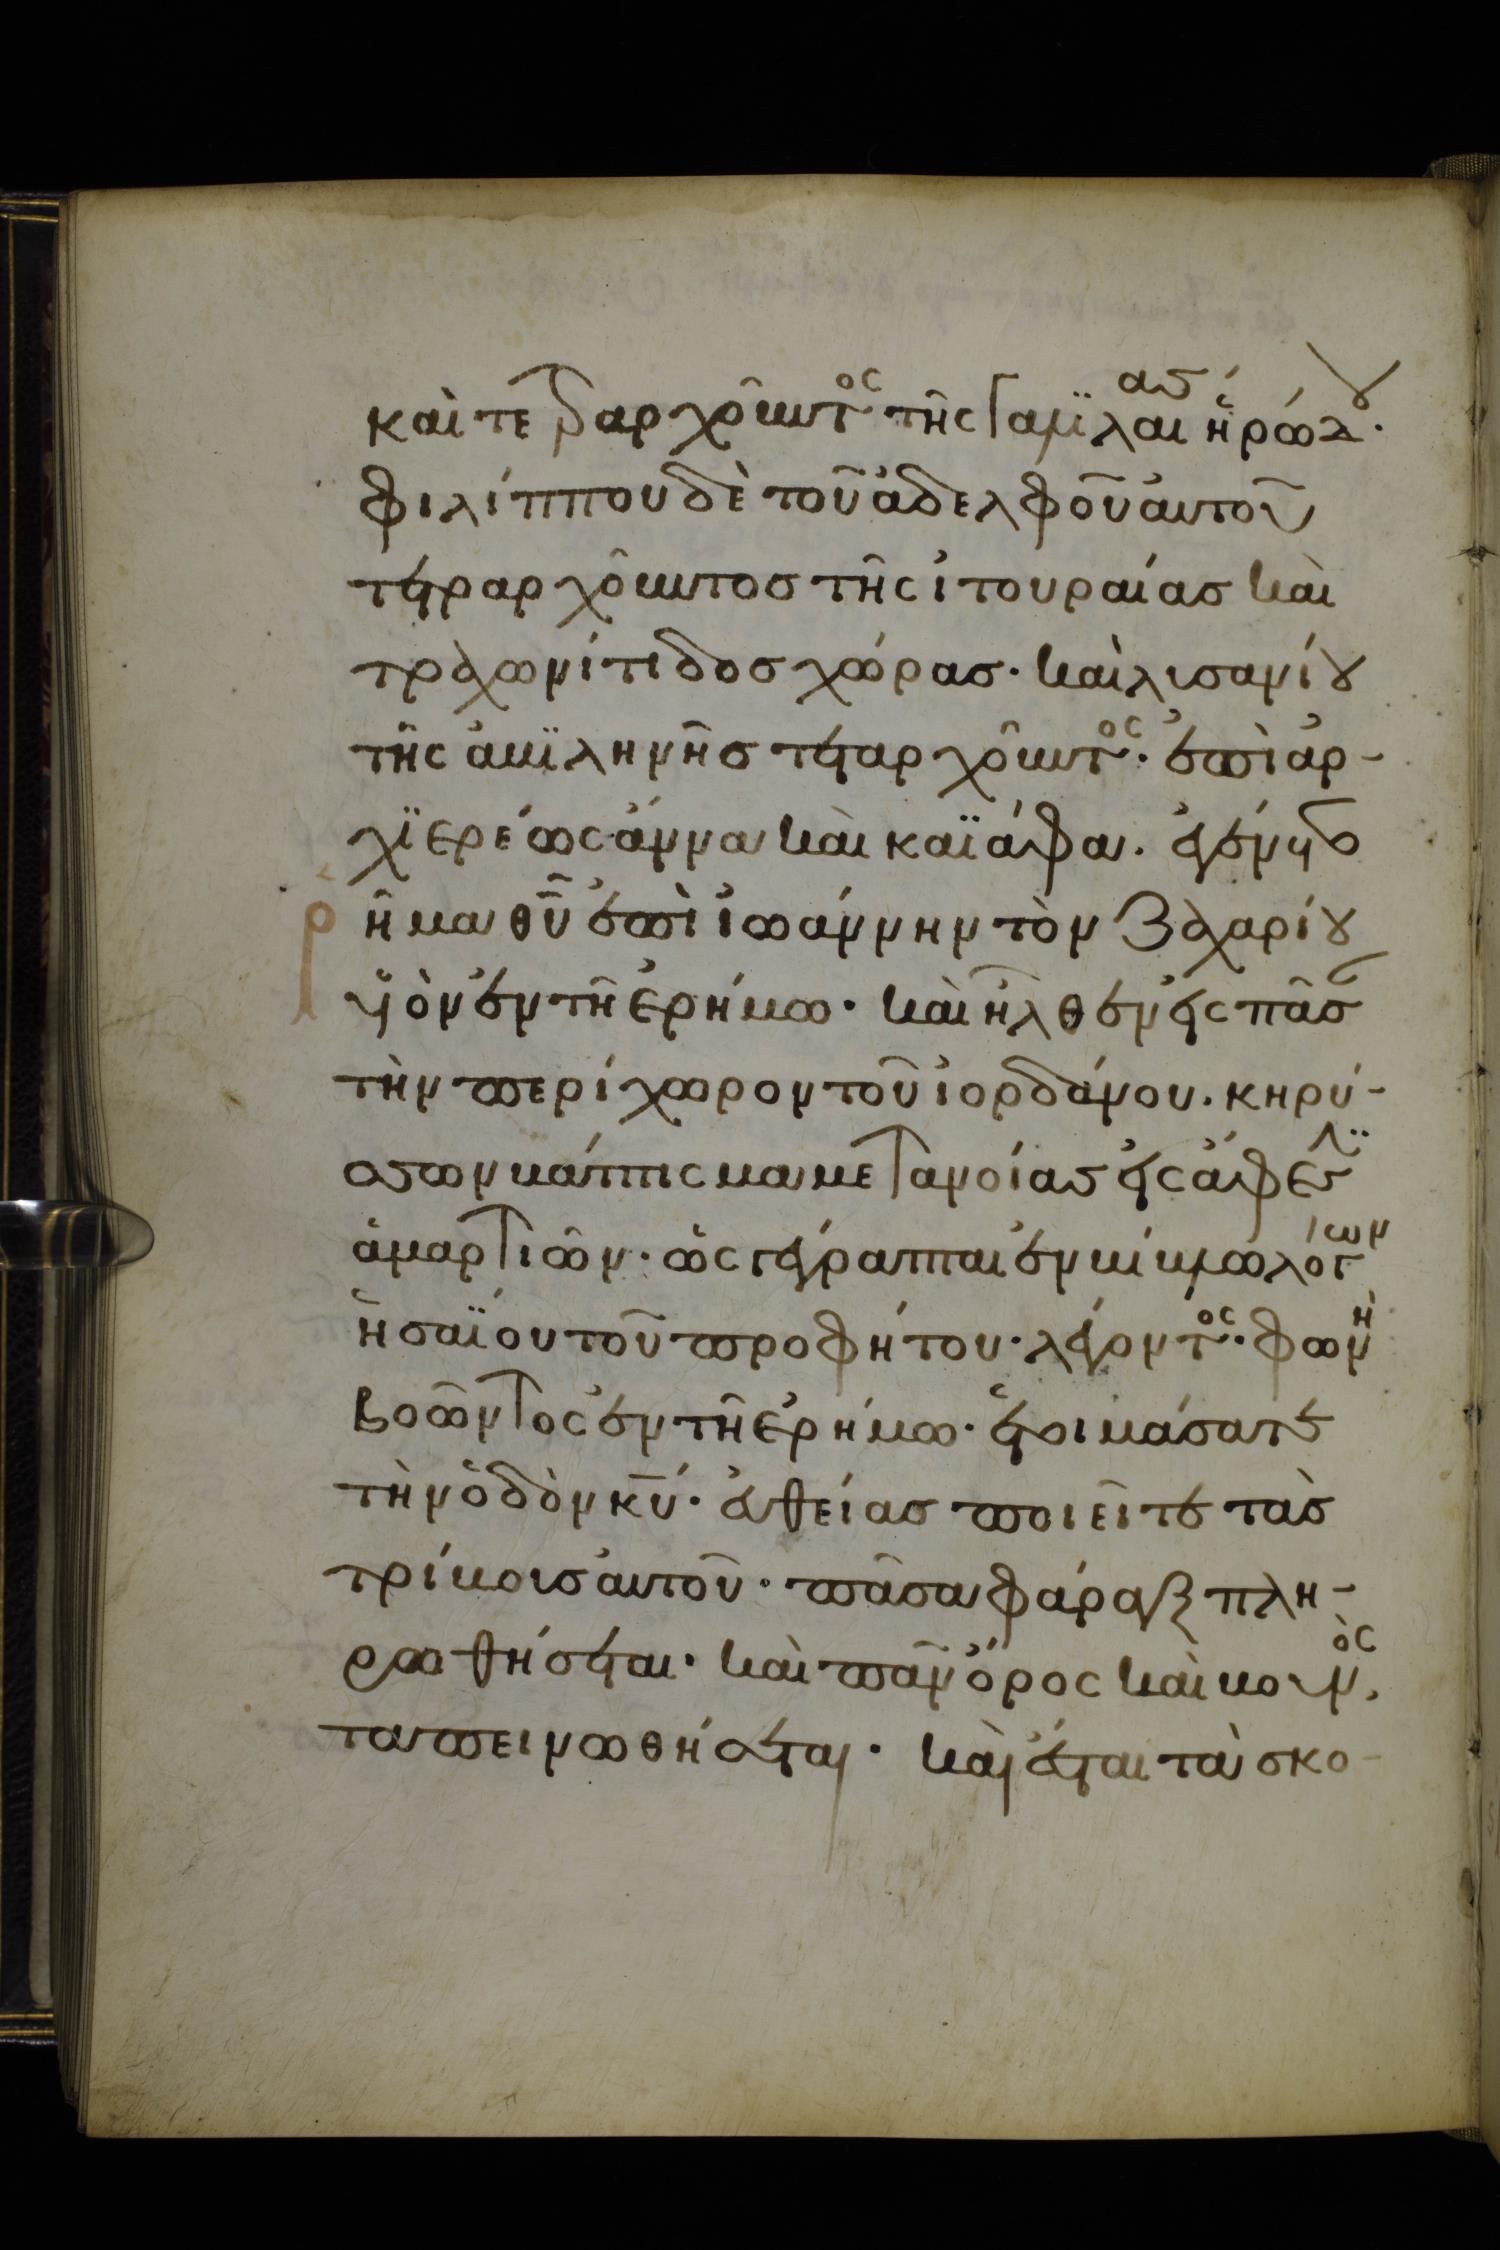 καὶ τετραρχοῦντος τῆς Γαλϊλαίας ἡρώδου·
φιλίππου δὲ τοῦ ἀδελφοῦ αὐτοῦ
τετραρχοῦντοσ τῆς ἰτουραίασ καὶ
τραχωνίτιδοσ χώρασ· καὶ λισανίου
τῆς ἀβϊληνῆσ τετραρχοῦντος· ἐπὶ ἀρ-
χϊερέως ἄννα καὶ καϊάφα· ἐγένετο
ῥῆμα θ̅υ̅ ἐπὶ ἰωάννην τὸν Ζαχαρίου
υἱὸν ἐν τῆ ἐρήμω· καὶ ἦλθεν εἰς πᾶσαν
τὴν περίχωρον τοῦ ἰορδάνου· κηρύ-
σσων βάπτισμα μετανοίασ εἰς ἄφεσϊν
ἁμαρτιῶν· ὡς γέγραπται ἐν βίβλω λόγων
ἡσαΐου τοῦ προφήτου· λέγοντος· φωνὴ
βοῶντος ἐν τῆ ἐρήμω· ἑτοιμάσατε
τὴν ὁδὸν κ̅υ̅· εὐθείασ ποιεῖτε τὰσ
τρίβουσ αὐτοῦ· πᾶσα φάραγξ πλη-
ρωθήσεται· καὶ πᾶν ὄρος καὶ βουνὸς
ταπεινωθήσεται· καὶ ἔσται τὰ σκο-